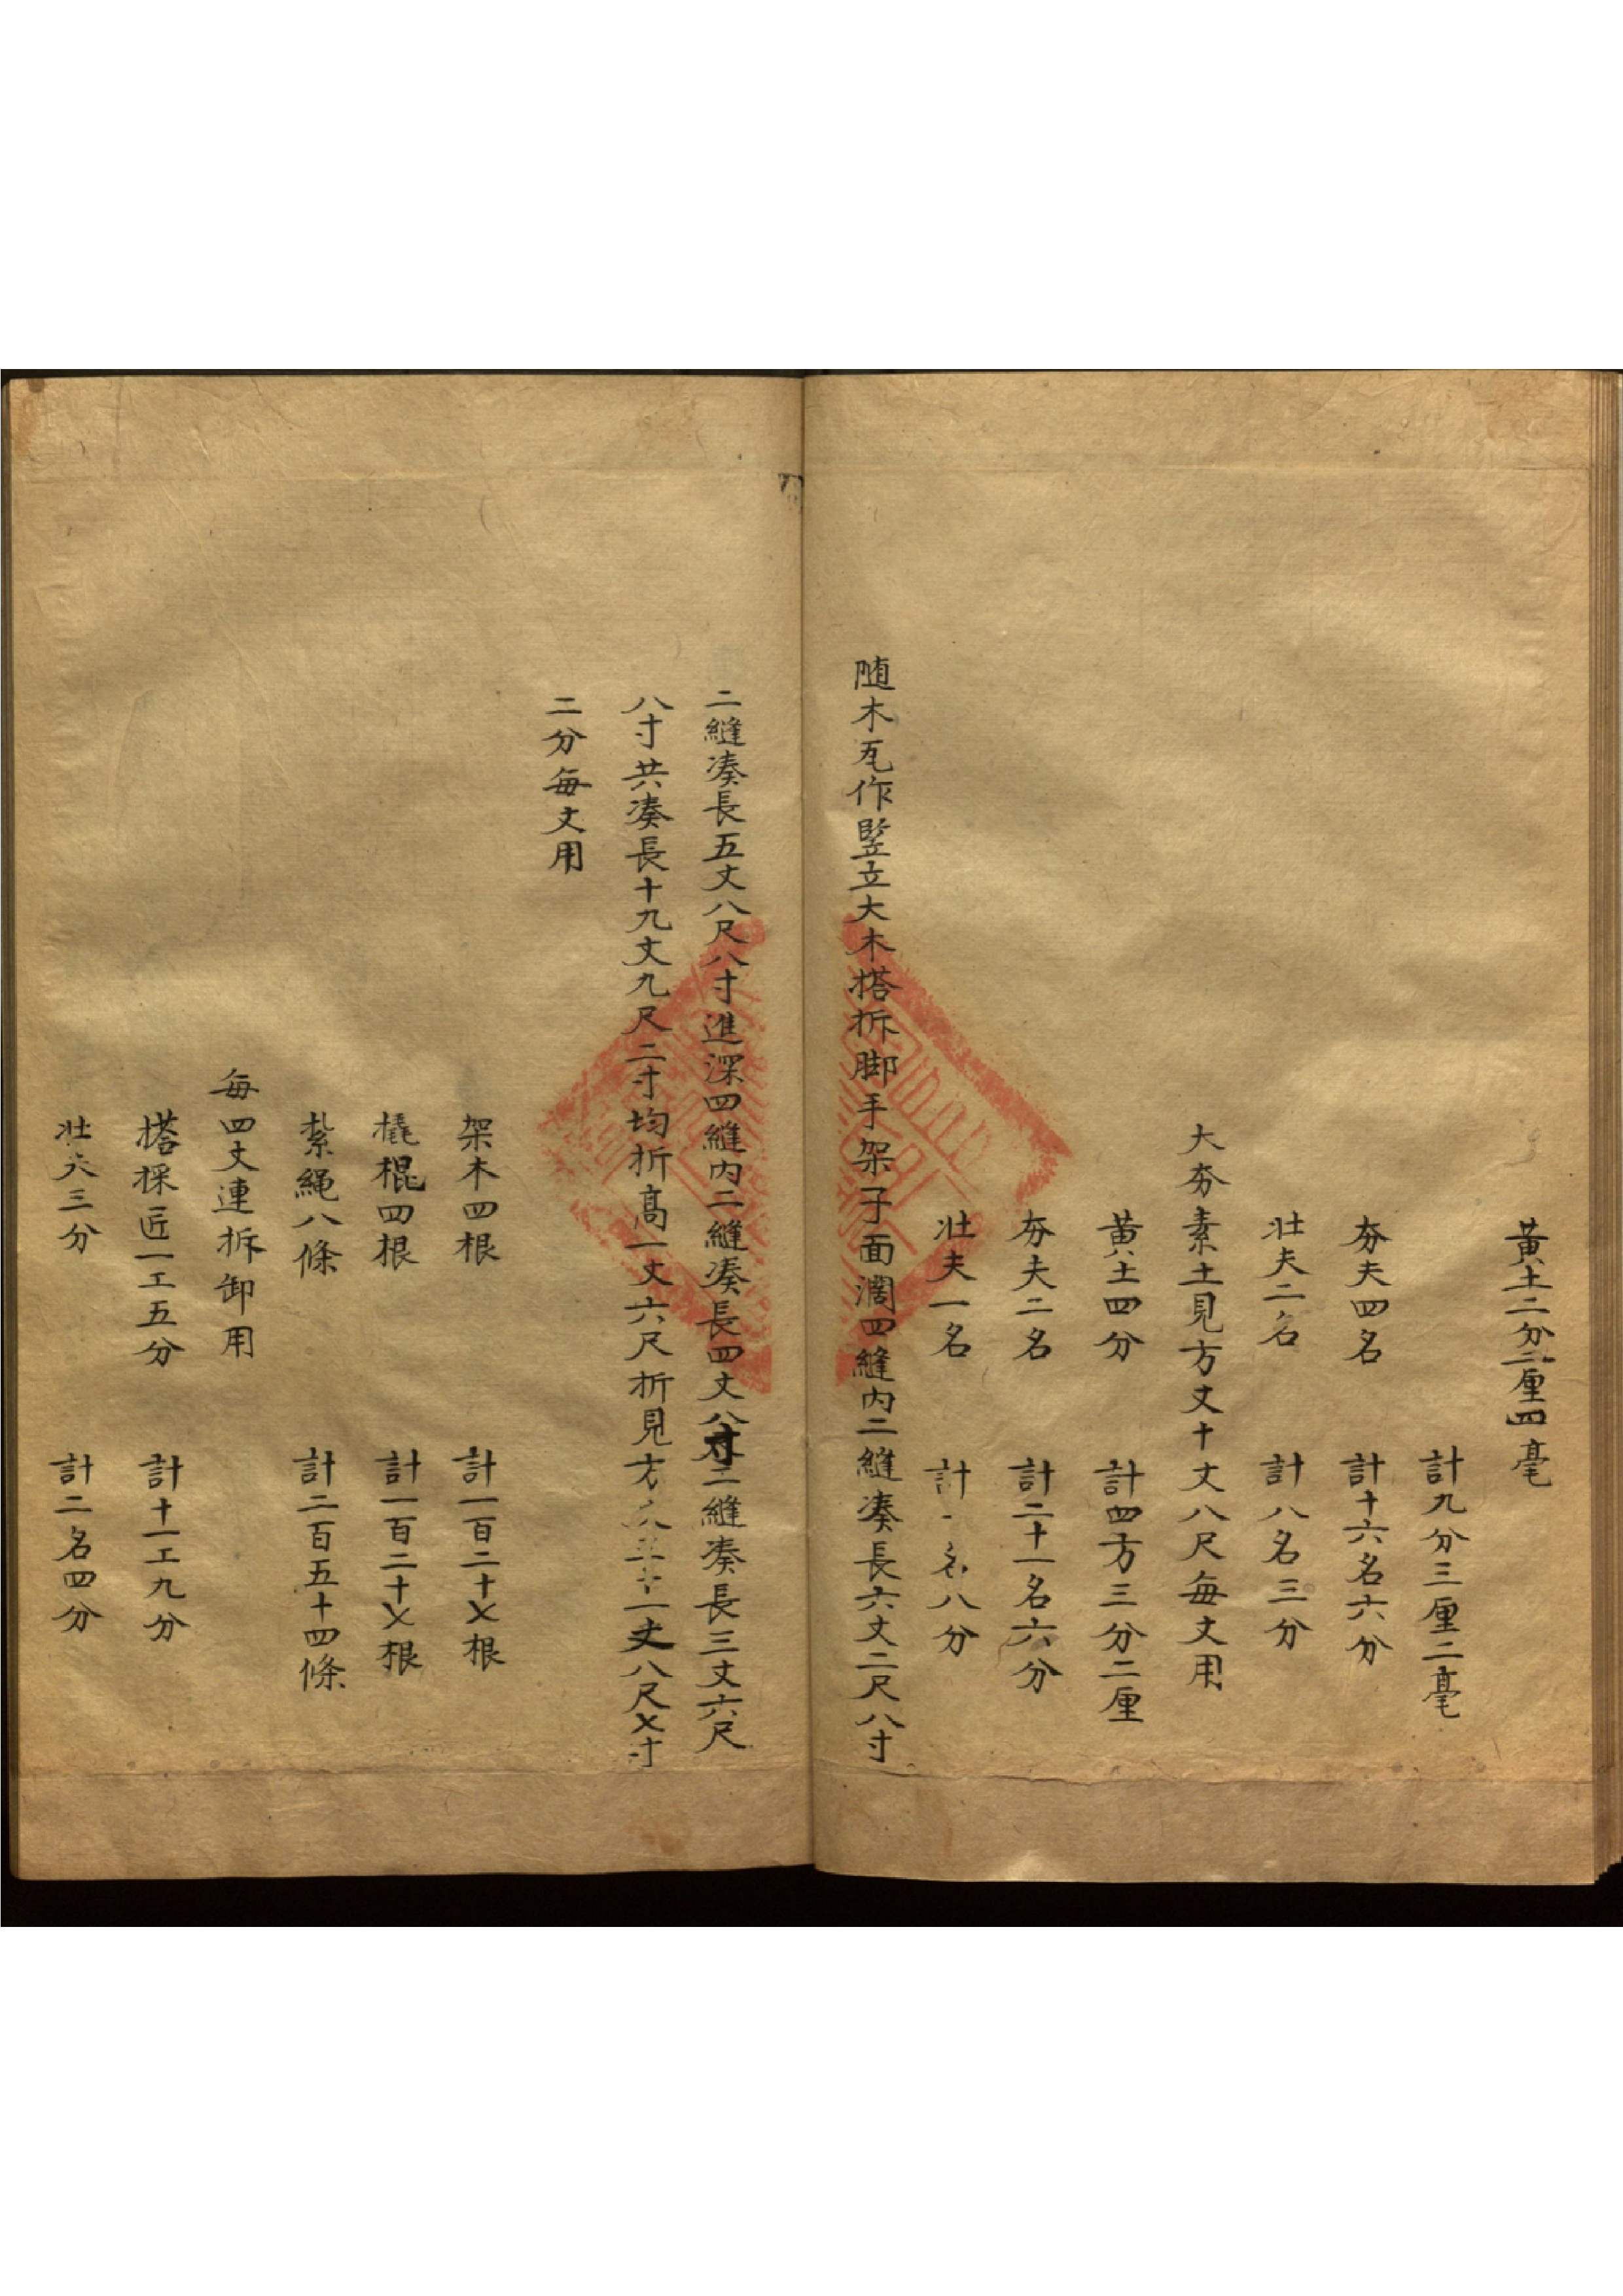 黄土二分二厘四毫
計九分三厘二毫
夯夫四名 計十六名六分
壮夫二名 計八名三分
大夯素土見方丈十丈八尺每丈用
黄土四分 計四方三分二厘
夯夫二名 計二十一名六分
壮夫一名 計 名八分
随木瓦作竪立大木搭拆脚手架子面濶四縫内二縫凑長六丈二尺八寸
二縫凑長五丈八尺八寸進深四縫内二縫凑長四丈八寸二縫凑長三丈六尺
八寸共凑長十九丈九尺二寸均折髙一丈六尺折見方 十一丈八尺乂寸
二分每丈用
架木四根 計一百二十乂根
橇棍四根 計一百二十乂根
紮繩八條 計二百五十四條
每四丈連拆卸用
搭採匠一工五分 計十一工九分
壮夫三分 計二名四分